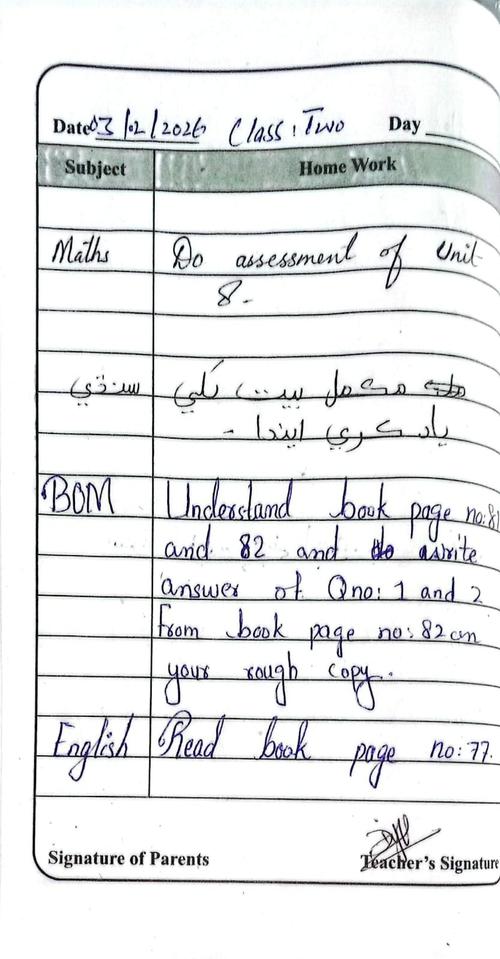 Date 03/02/2026 Class: Two Day
Subject Home Work
Maths Do assessment of Unit
8.
سنڌي مڪمل بيت لکي
ياد ڪري ايندا -
BOM Understand book page no: 81
and 82 and write
answer of Qno: 1 and 2
from book page no: 82 on
your rough copy.
English Read book page no: 77.
Signature of Parents Teacher's Signature